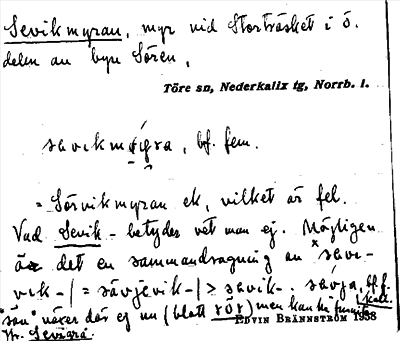 Sevikmyran, myr vid Storträsket i ö.
delen av byn Sören.
Töre sn, Nederkalix tg, Norrb. l.
bf. fem.
= Sörvikmyran ek, vilket är fel.
Vad Sevik- betyder vet man ej. Möjligen
är det en sammandragning av
vik-| = sävjevik-| > savik-. sävja, bf. f.
"säv" växer där ej nu (blott rör) men kan ha funnits
EDVIN BRÄNNSTRÖM 1938